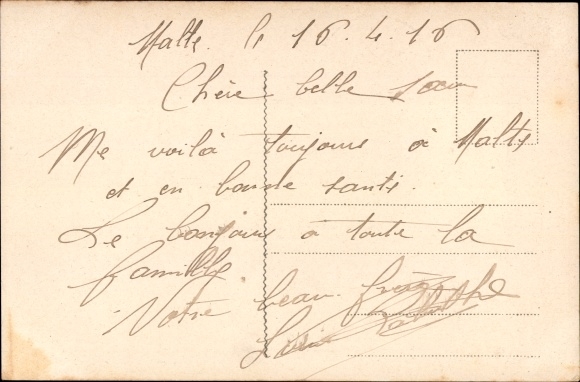 Malte. le 16.4.16
Chère belle soeur
Me voilà toujours à Malte
et en bonne santé.
Le bonjour à toute la
famille.
Votre beau frère
Louis